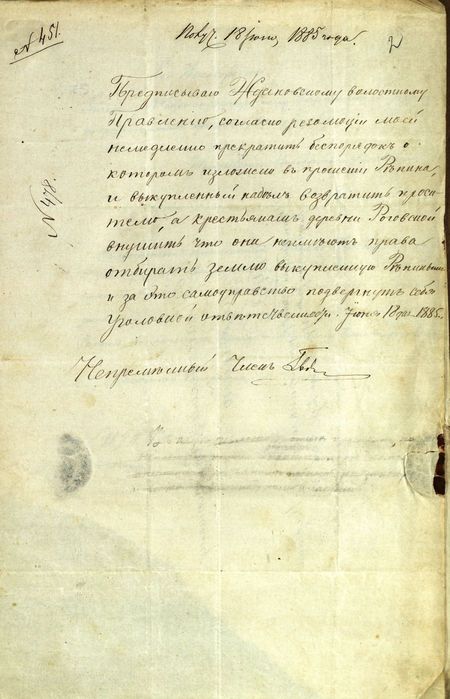 № 451.
Получ. 18 Іюня 1885 года.
2
Предписываю Ждановскому волостному
Правленію, согласно резолюціи моей
немедленно прекратить беспорядок о
котором изложено въ прошеніи Рѣпина,
и выкупленный надѣлъ возвратить проси-
телю, а крестьянамъ деревни Роговской
внушить что они неимѣютъ права
отбирать землю выкупленную Рѣпинымъ
и за это самоуправство подвергнутъ себя
уголовной отвѣтственности. Іюня 18 дня 1885 г.
№ 478
Непремѣнный Членъ